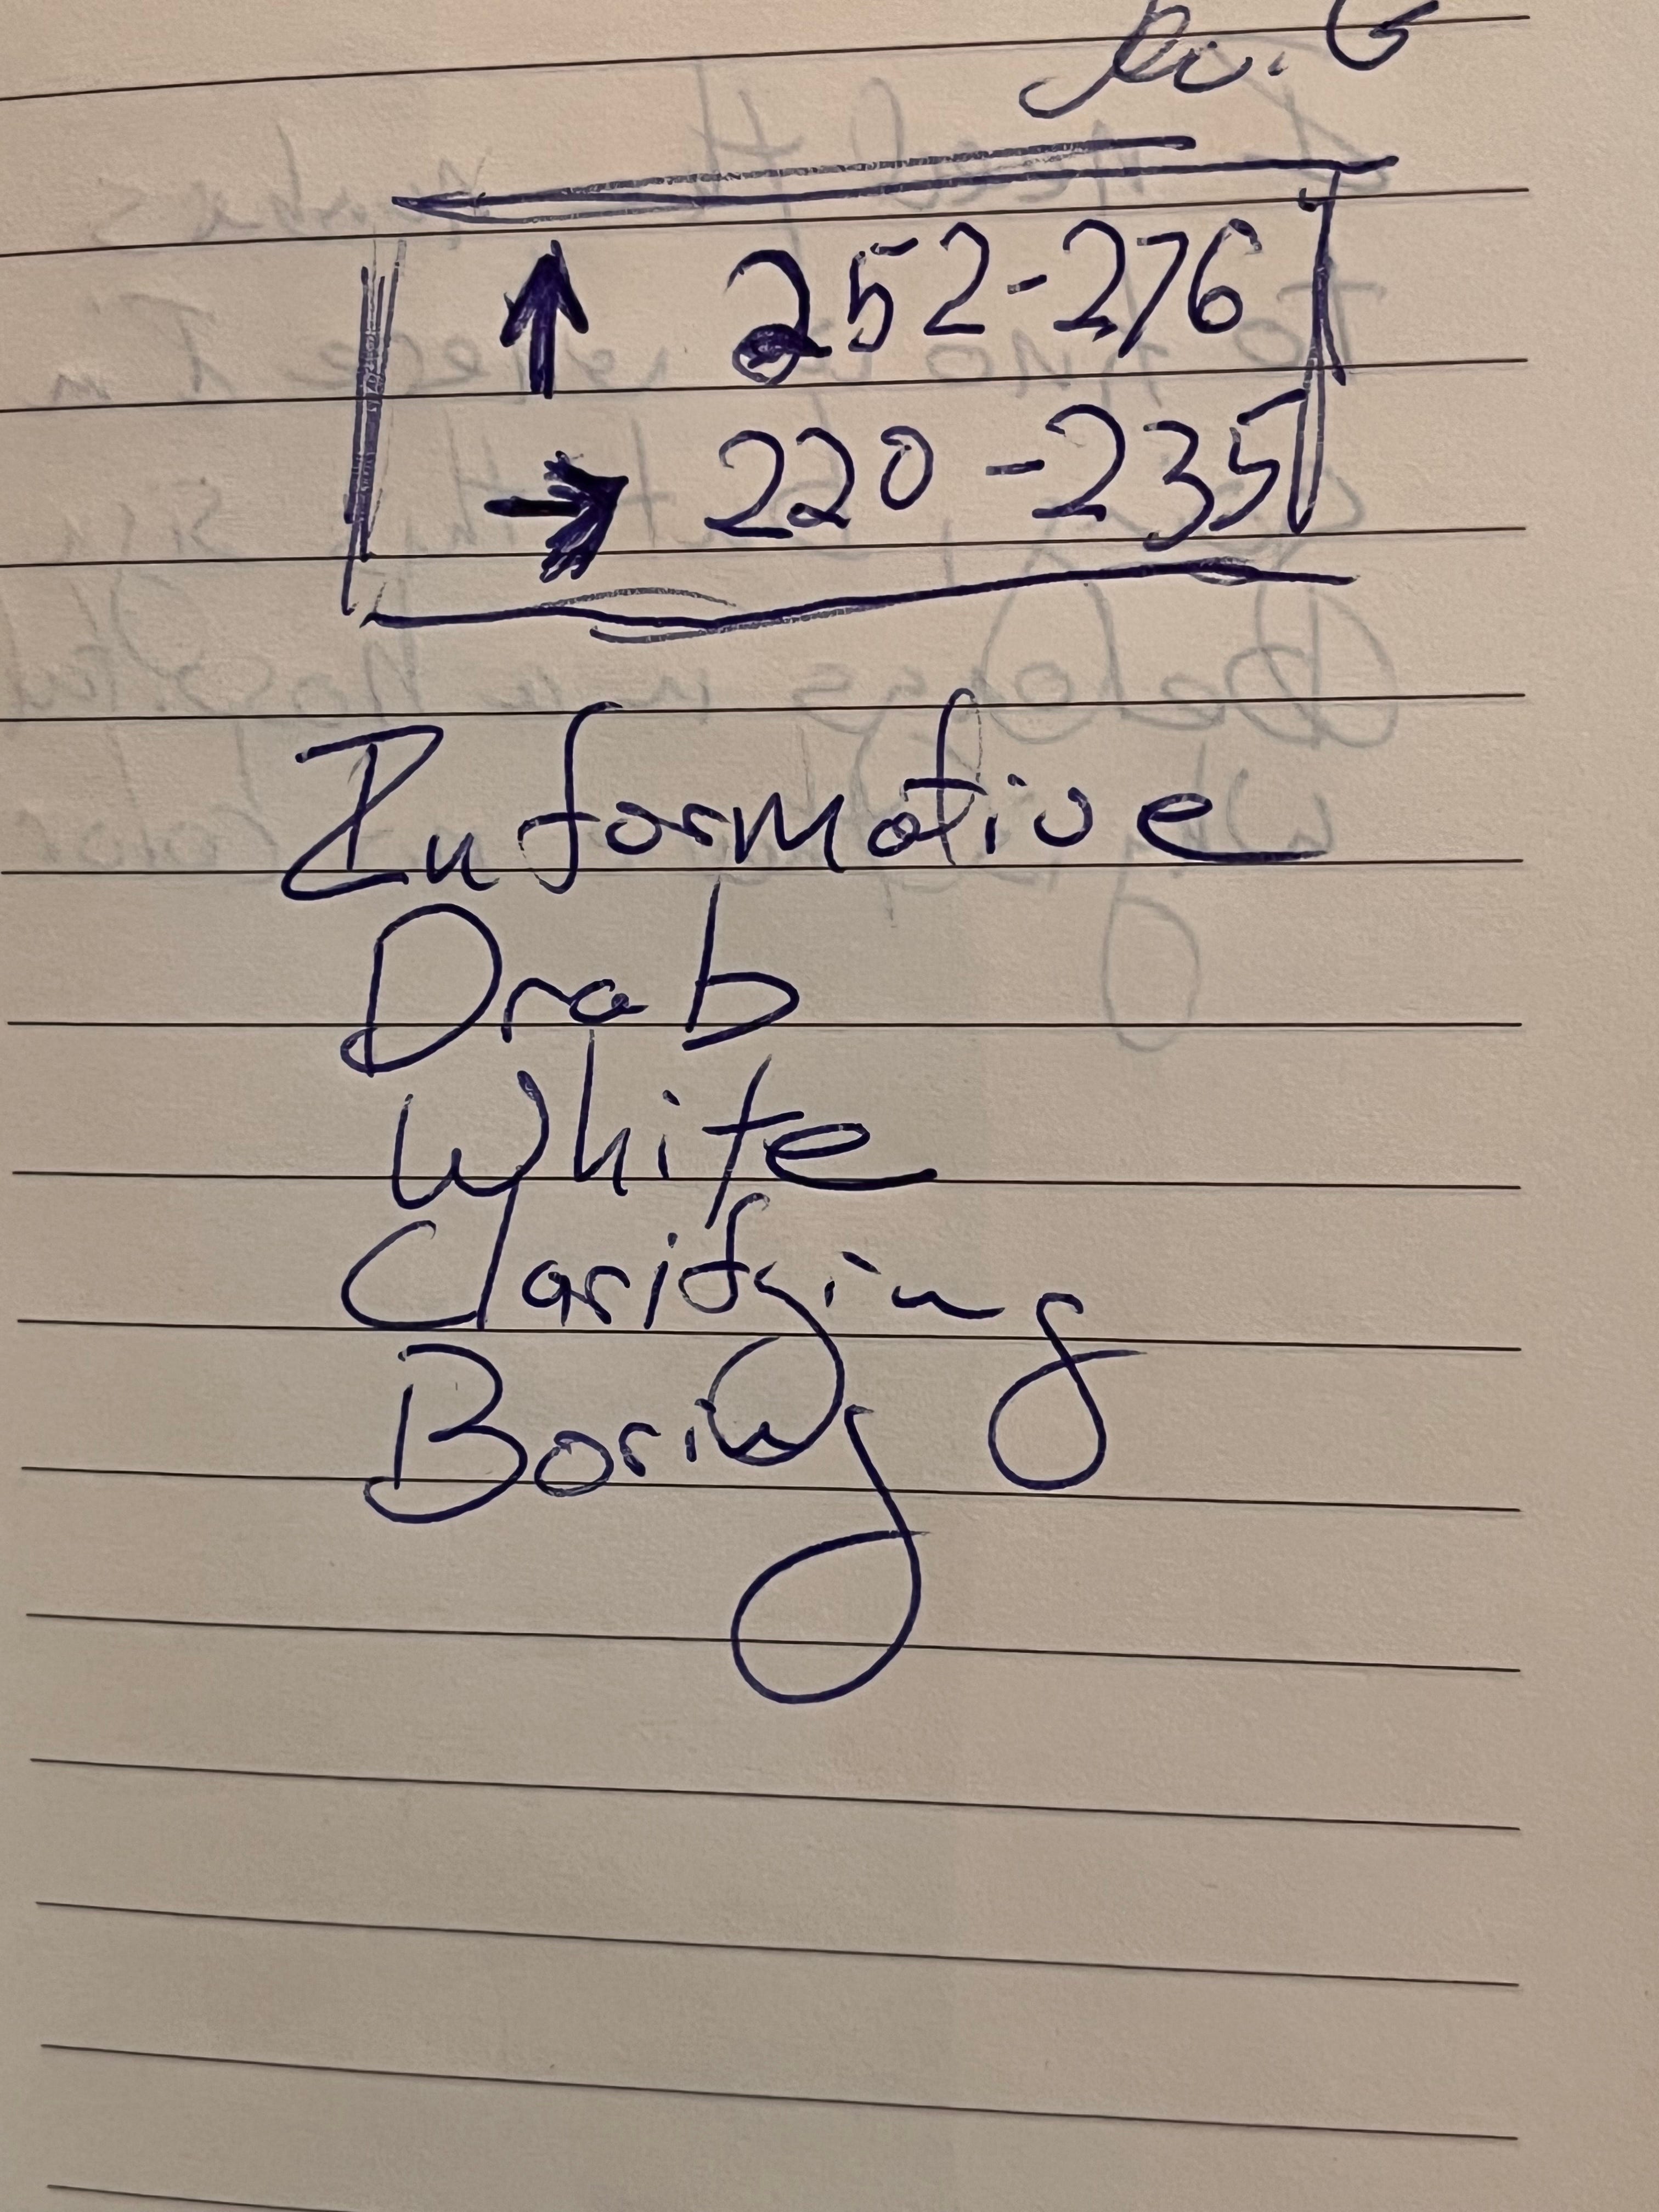 ↑ 252-276
→ 220-235
Informative
Drab
White
Clarifying
Boring